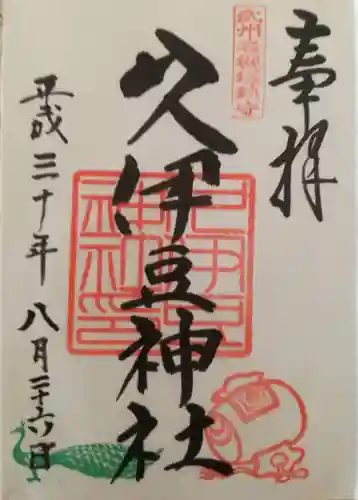 奉拝
久伊豆神社
平成三十年八月二十六日